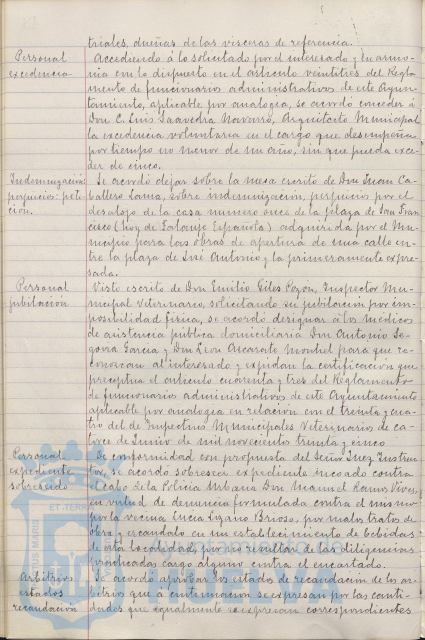 triales, dueñas de las visceras de referencia.
Personal
excedencia
Accediendo á lo solicitado por el interesado y en armo-
nia con lo dispuesto en el articulo veintitres del Regla-
mento de funcionarios administrativos de este Ayun-
tamiento, aplicable por analogia, se acordo conceder á
Don C. Luis Saavedra Navarro, Arquitecto Municipal
la excedencia voluntaria en el cargo que desempeña
por tiempo no menor de un año, sin que pueda exce-
der de cinco.
Indemnización
perjuicios: peti-
ción.
Se acordó dejar sobre la mesa escrito de Don Juan Ca-
ballero Lama, sobre indemnización, perjuicio por el
desalojo de la casa numero once de la plaza de San Fran-
cisco (hoy de Falange Española) adquirida por el Mu-
nicipio para las obras de apertura de una calle en-
tre la plaza de José Antonio y la primeramente expre-
sada.
Personal
jubilación
Visto escrito de Don Emilio Giles Pozón, Inspector Mu-
nicipal Veterinario, solicitando su jubilación por im-
posibilidad fisica, se acordó designar á los médicos
de asistencia pública domiciliaria Don Antonio Se-
govia Garcia y Don Leon Azcarate Montiel para que re-
conozcan al interesado y expidan la certificacion que
preceptua el articulo cuarenta y tres del Reglamento
de funcionarios administrativos de este Ayuntamiento
aplicable por analogia en relación con el treinta y cua-
tro del de Inspectores Municipales Veterinarios de ca-
torce de Junio de mil novecientos treinta y cinco
Personal
expediente
sobreseido
De conformidad con propuesta del Señor Juez Instruc-
tor, se acordo sobreseer expediente incoado contra
el cabo de la Policia Urbana Don Manuel Ramos Vives,
en virtud de denuncia formulada contra el mismo
por la vecina Lucia Lozano Brioso, por malos tratos de
obra y escandalo en un establecimiento de bebidas
de esta localidad, por no resultar de las diligencias
practicadas cargo alguno contra el encartado.
Arbitrios
estados
recaudación
Se acordó aprobar los estados de recaudacion de los ar-
bitrios que á continuacion se expresan por las canti-
dades que igualmente se expresan correspondientes